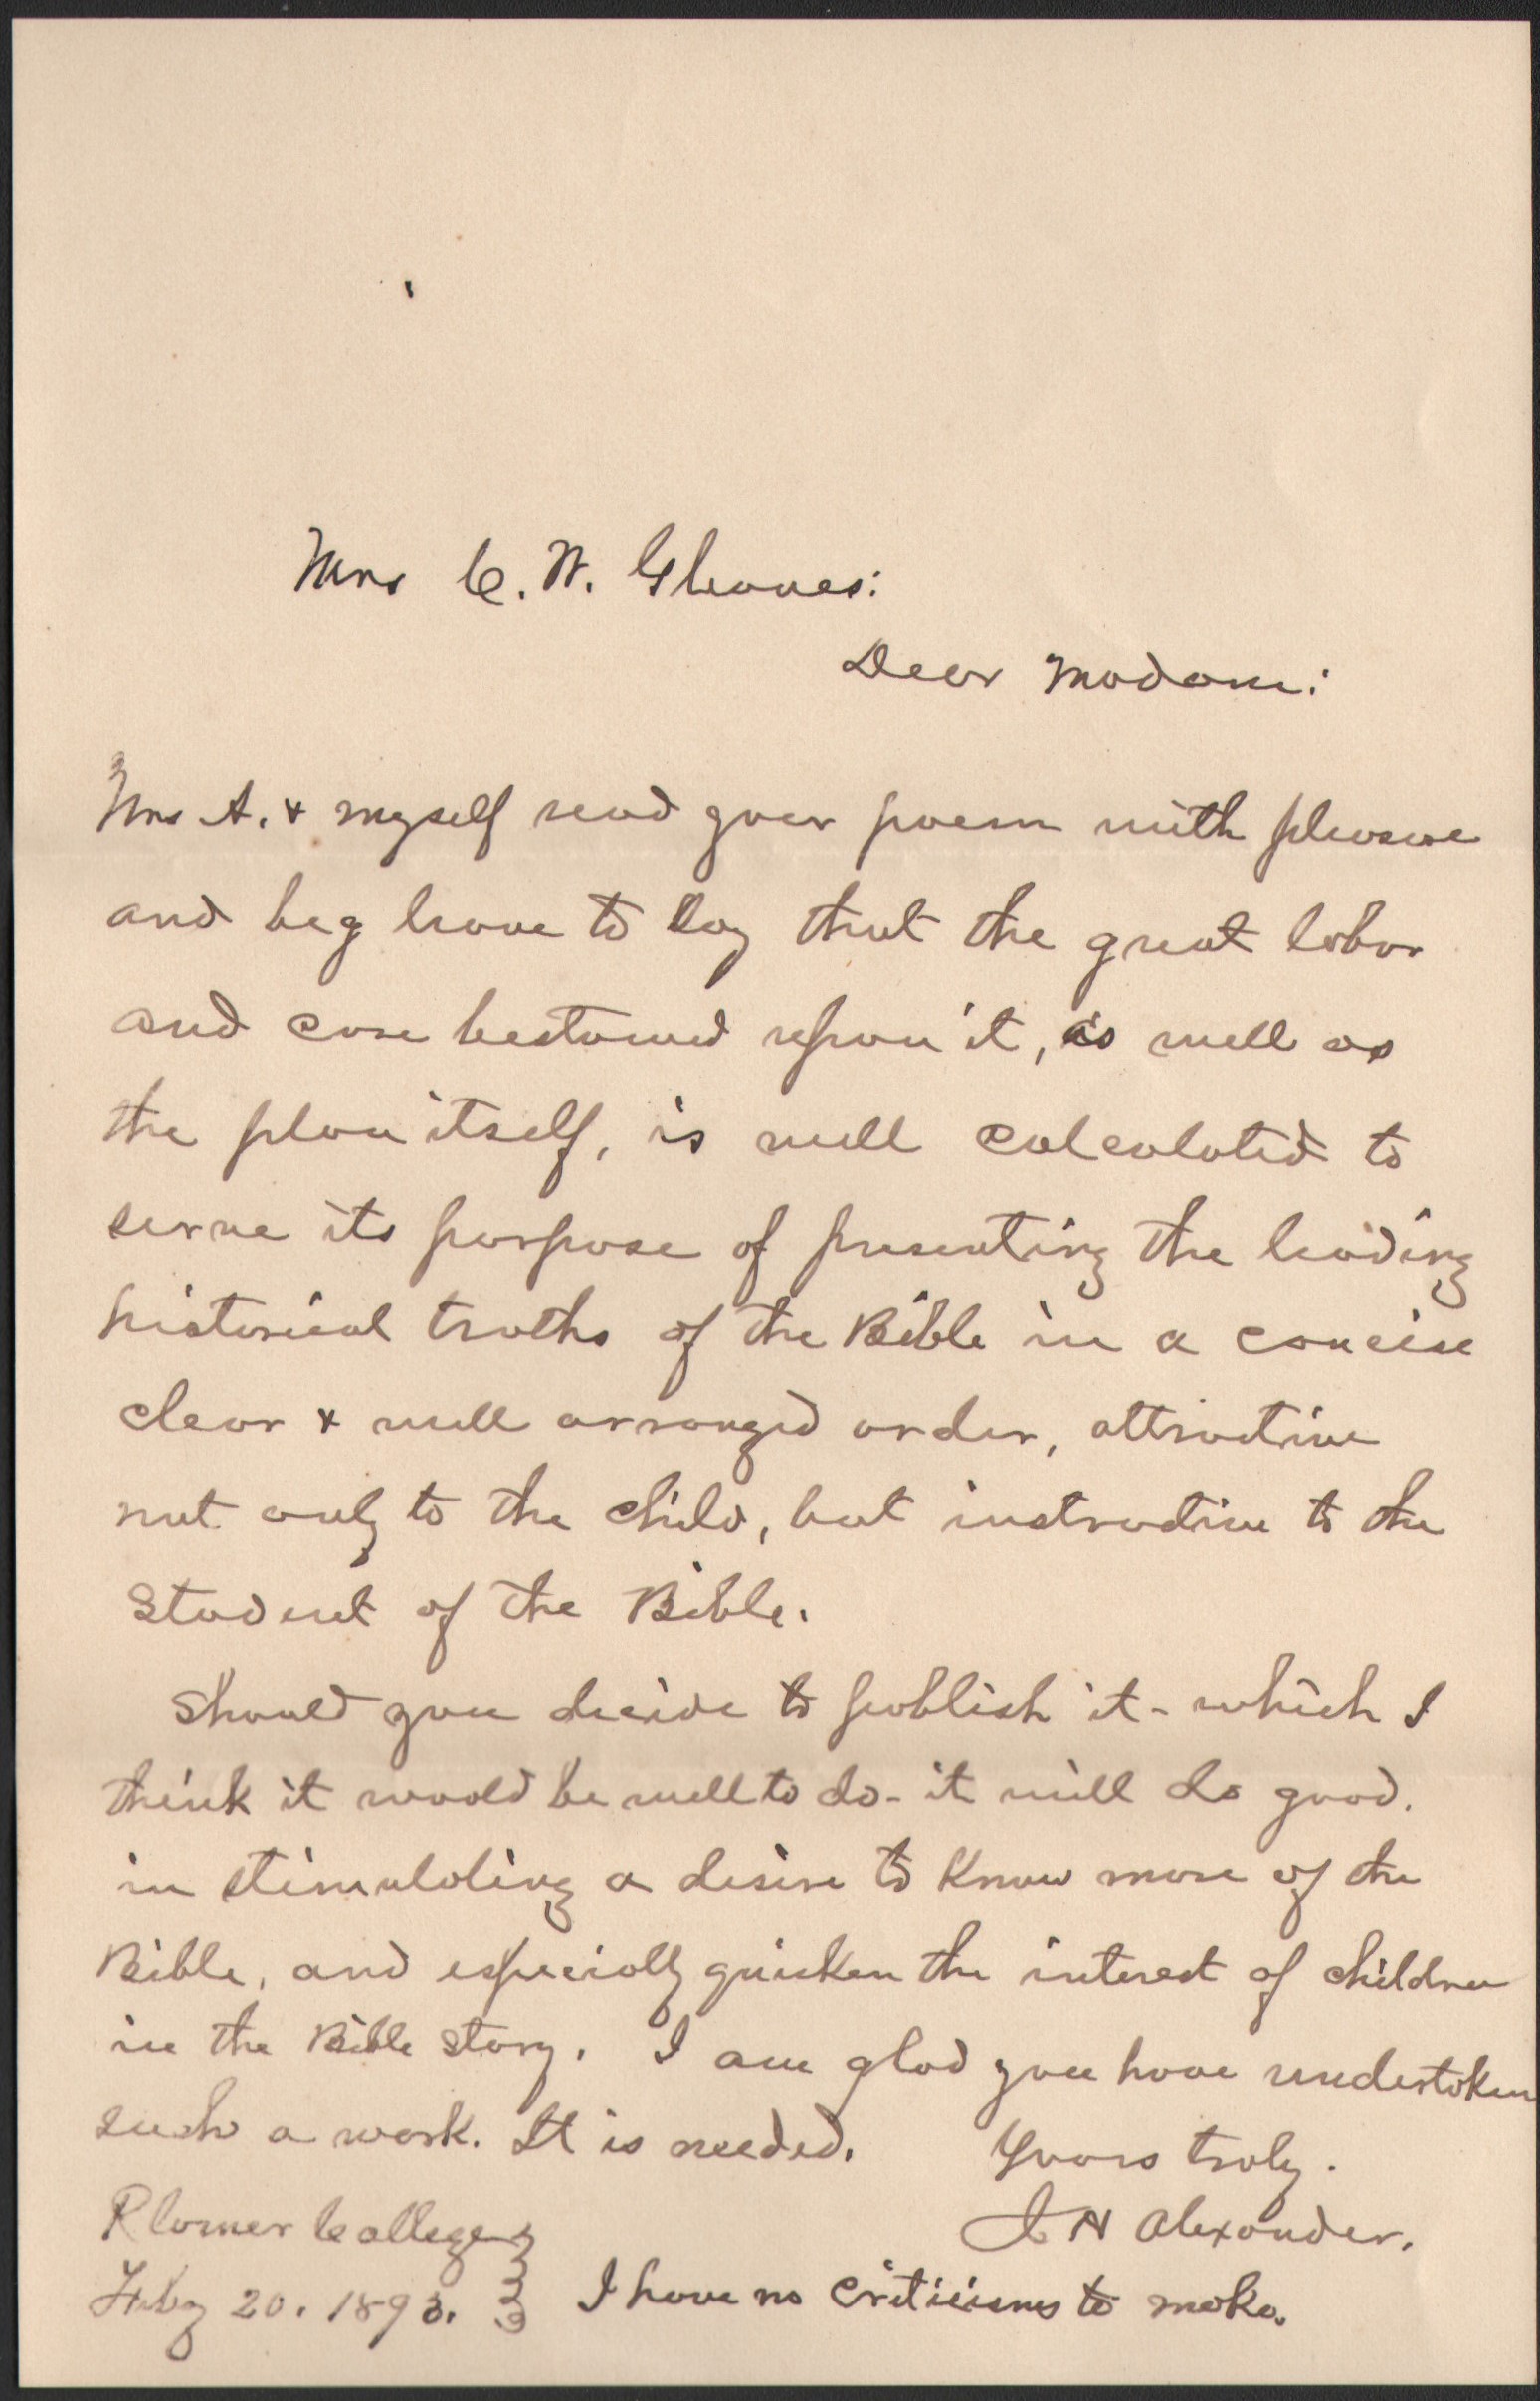 Mrs C. W. Gleaves:
Dear Madam:
Mrs A. & myself read your poem with pleasure
and beg leave to say that the great labor
and care bestowed upon it, as well as
the plan itself, is well calculated to
serve its purpose of presenting the leading
historical truths of the Bible in a concise
clear & well arranged order, attractive
not only to the child, but instructive to the
student of the Bible.
Should you decide to publish it - which I
think it would be well to do - it will do good.
in stimulating a desire to know more of the
Bible, and especially quicken the interest of children
in the Bible story. I am glad you have undertaken
such a work. It is needed. Yours truly.
College J H Alexander.
Feby 20. 1893. I have no criticisms to make.